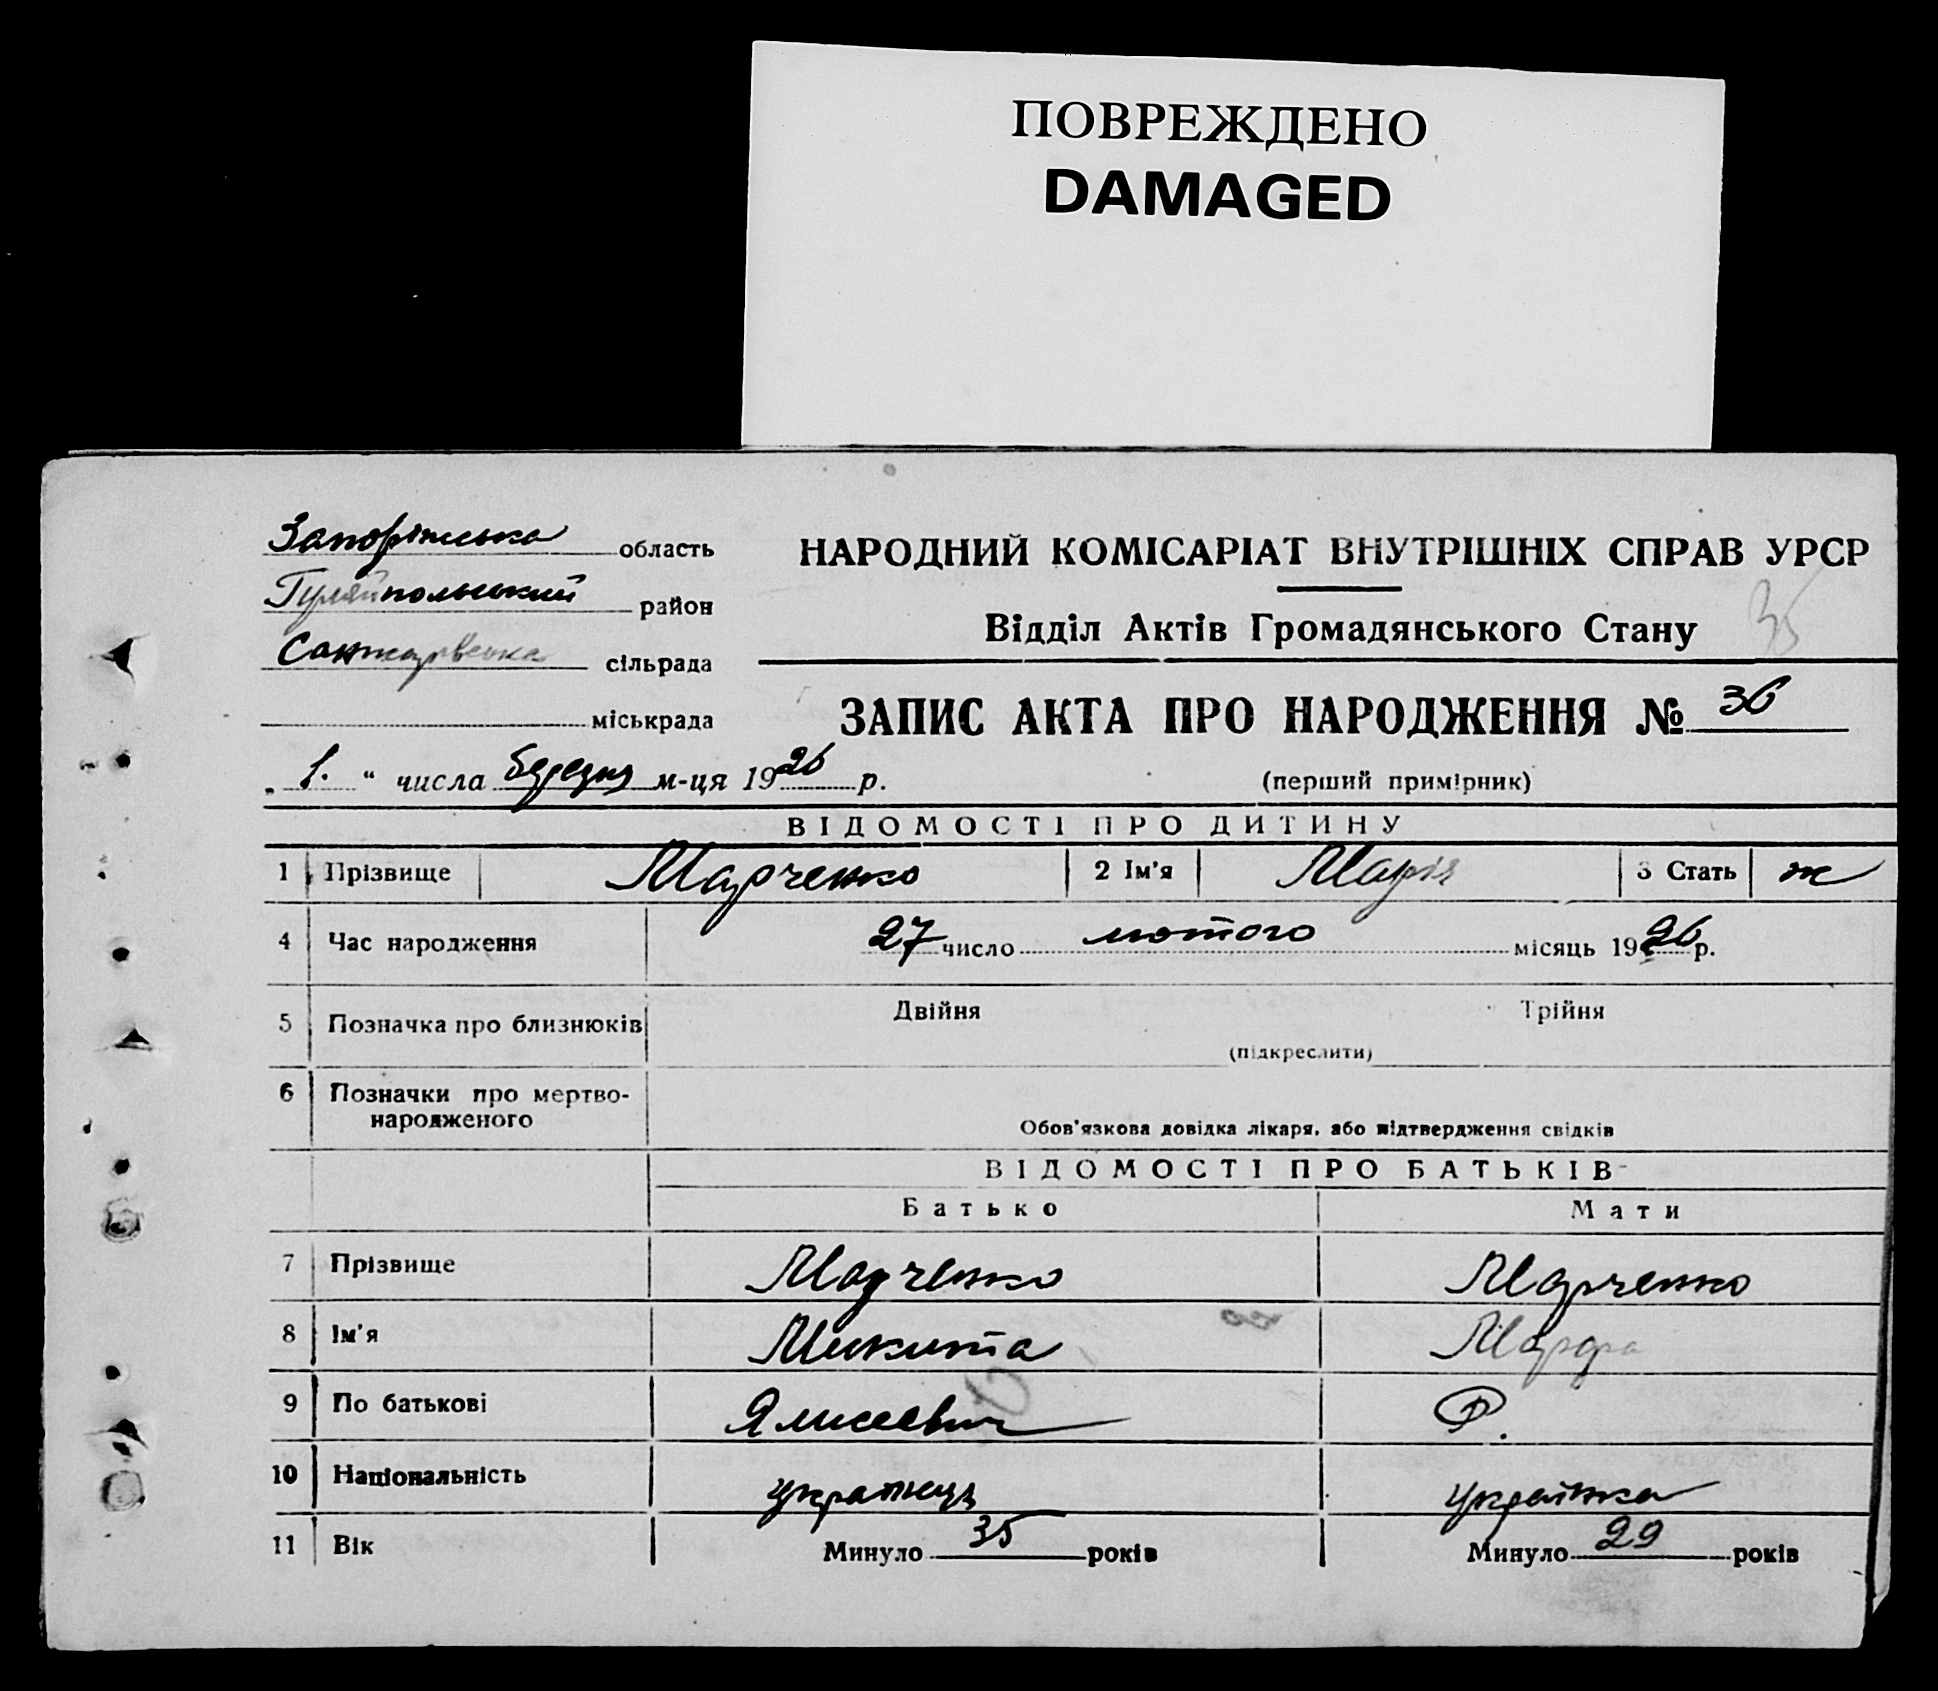 ПОВРЕЖДЕНО
DAMAGED
Запоріжська область
Гуляйпольський район
Санжарівська сільрада
міськрада
НАРОДНИЙ КОМІСАРІАТ ВНУТРІШНІХ СПРАВ УРСР
Відділ Актів Громадянського Стану 35
ЗАПИС АКТА ПРО НАРОДЖЕННЯ № 36
„ 1. “ числа березня м-ця 1926 р.
(перший примірник)
ВІДОМОСТІ ПРО ДИТИНУ
1 Прізвище Марченко 2 Ім'я Марія 3 Стать ж
4 Час народження 27 число лютого місяць 1926 р.
5 Позначка про близнюків Двійня Трійня
(підкреслити)
6 Позначки про мертво-
народженого
Обов'язкова довідка лікаря, або підтвердження свідків
ВІДОМОСТІ ПРО БАТЬКІВ
Батько Мати
7 Прізвище Марченко Марченко
8 Ім'я Микита Марфа
9 По батькові Ялисеевич Ф.
10 Національність українець українка
11 Вік Минуло 35 років Минуло 29 років